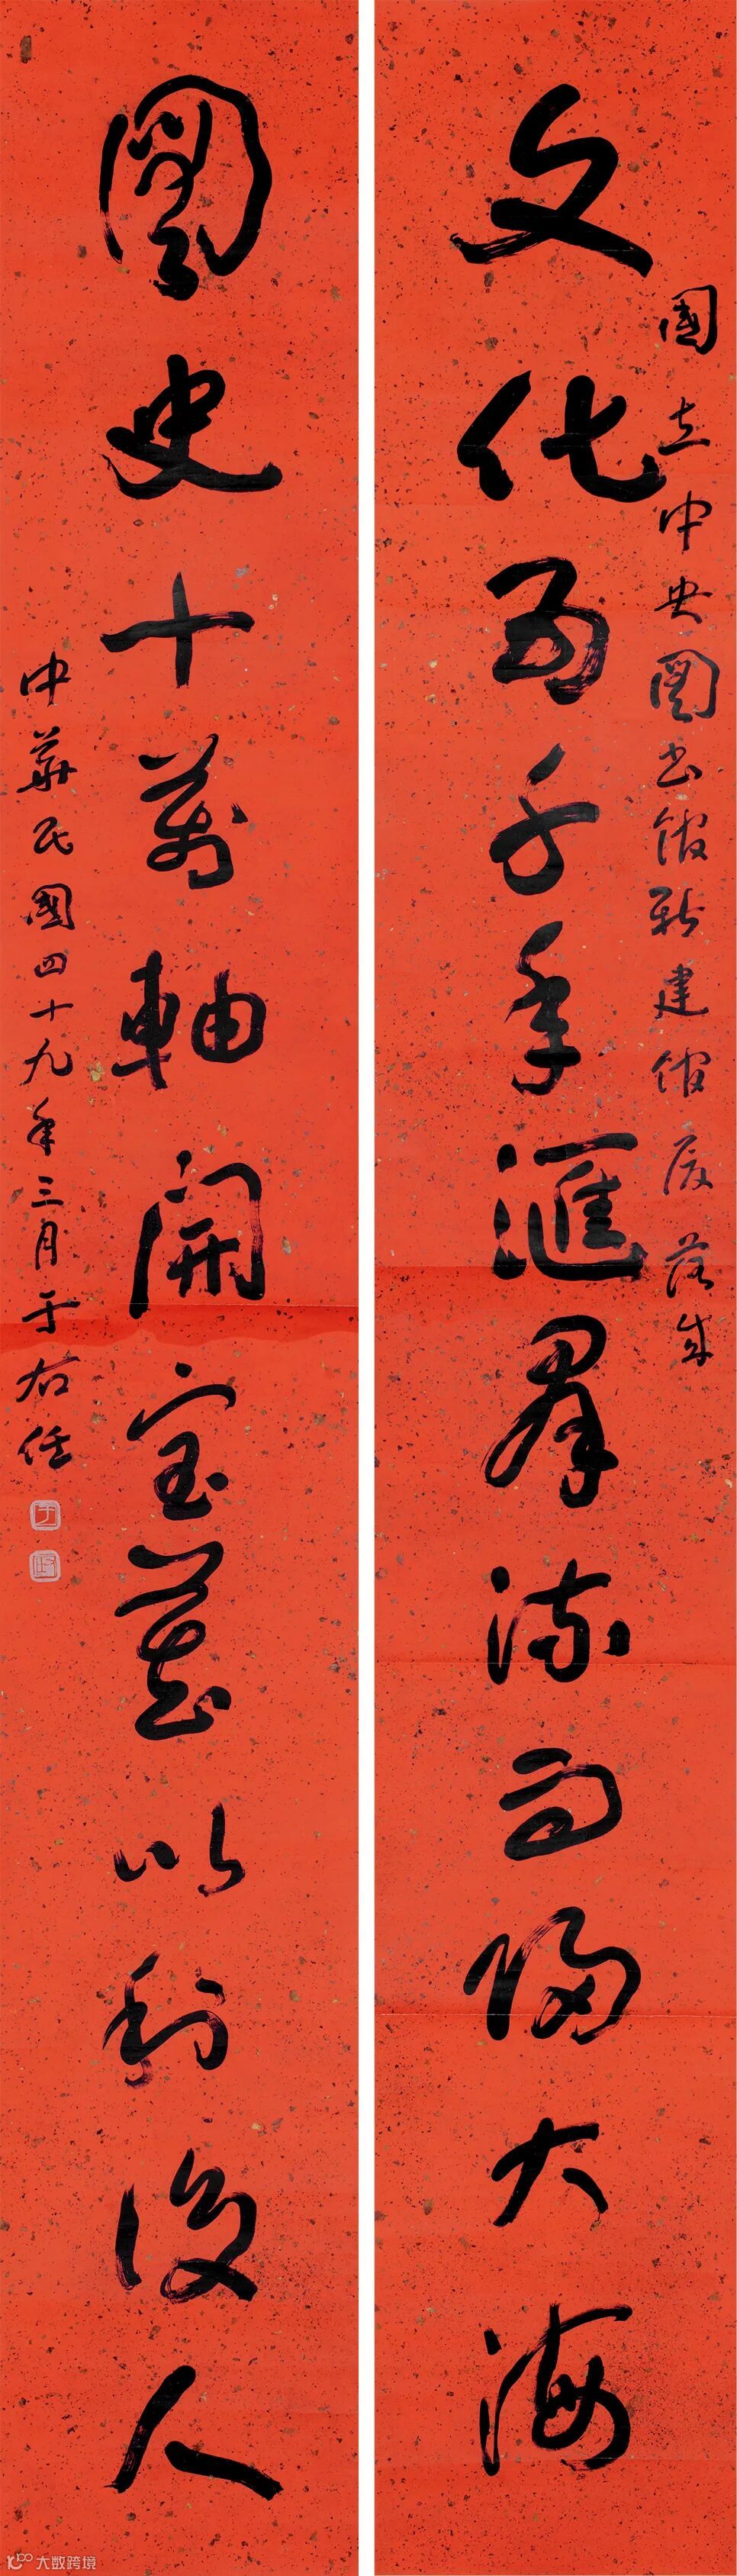 國立中央圖書館新建館廈落成
文化五千年滙群流而歸大海
圖史十萬軸開宝藏以利後人
中華民國四十九年三月于右任
大数跨境